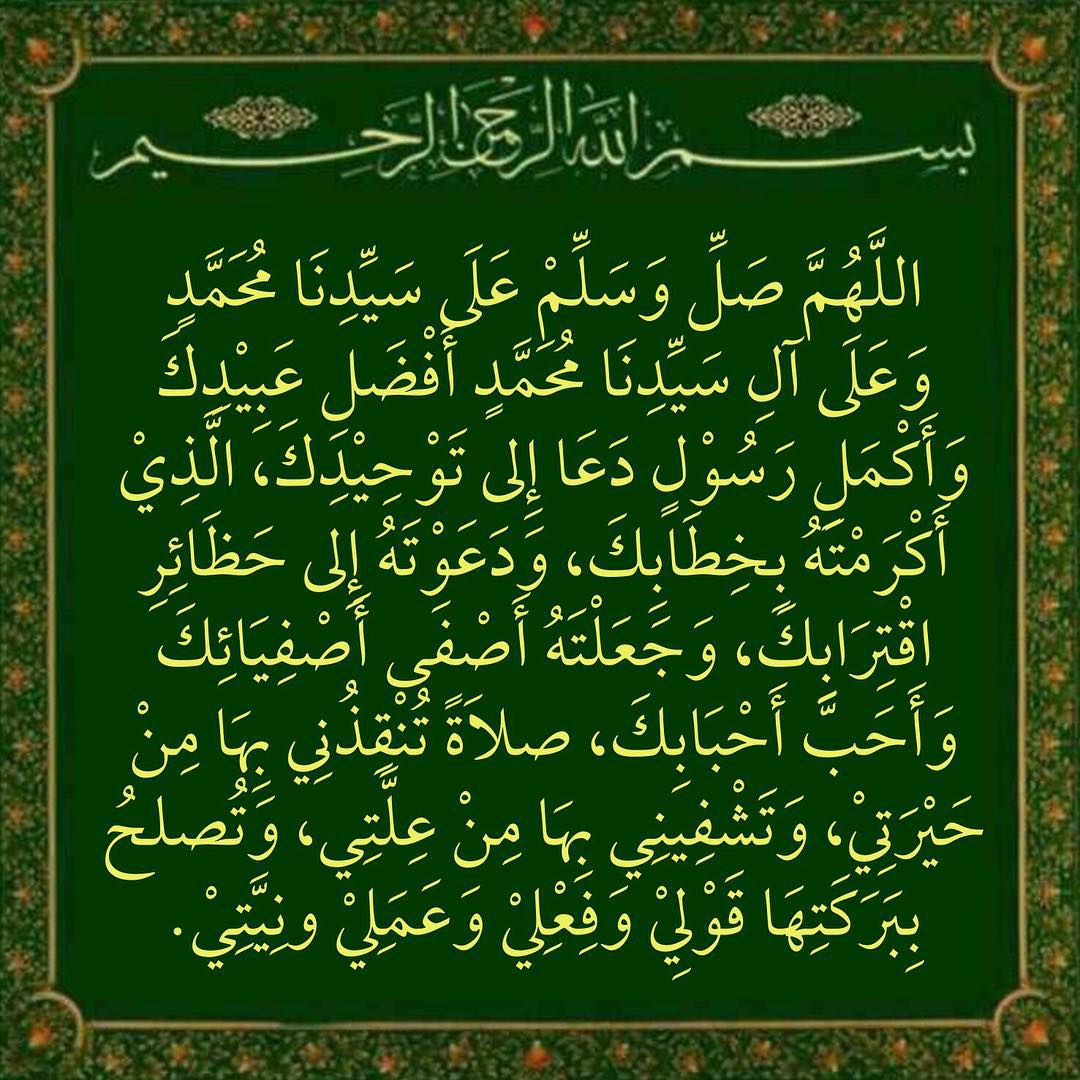 بسم الله الرحمن الرحيم
اللَّهُمَّ صَلِّ وَسَلِّمْ عَلَى سَيِّدِنَا مُحَمَّدٍ
وَعَلَى آلِ سَيِّدِنَا مُحَمَّدٍ أَفْضَلِ عَبِيْدِكَ
وَأَكْمَلِ رَسُوْلٍ دَعَا إِلى تَوْحِيْدِكَ، الَّذِيْ
أَكْرَمْتَهُ بِخِطَابِكَ، وَدَعَوْتَهُ إِلى حَظَائِرِ
اقْتِرَابِكَ، وَجَعَلْتَهُ أَصْفَى أَصْفِيَائِكَ
وَأَحَبَّ أَحْبَابِكَ، صلاَةً تُنْقِذُنِي بِهَا مِنْ
حَيْرَتِيْ، وَتَشْفِينِي بِهَا مِنْ عِلَّتِي، وَتُصلحُ
بِبَرَكَتِهَا قَوْلِيْ وَفِعْلِيْ وَعَمَلِيْ ونِيَّتِيْ.